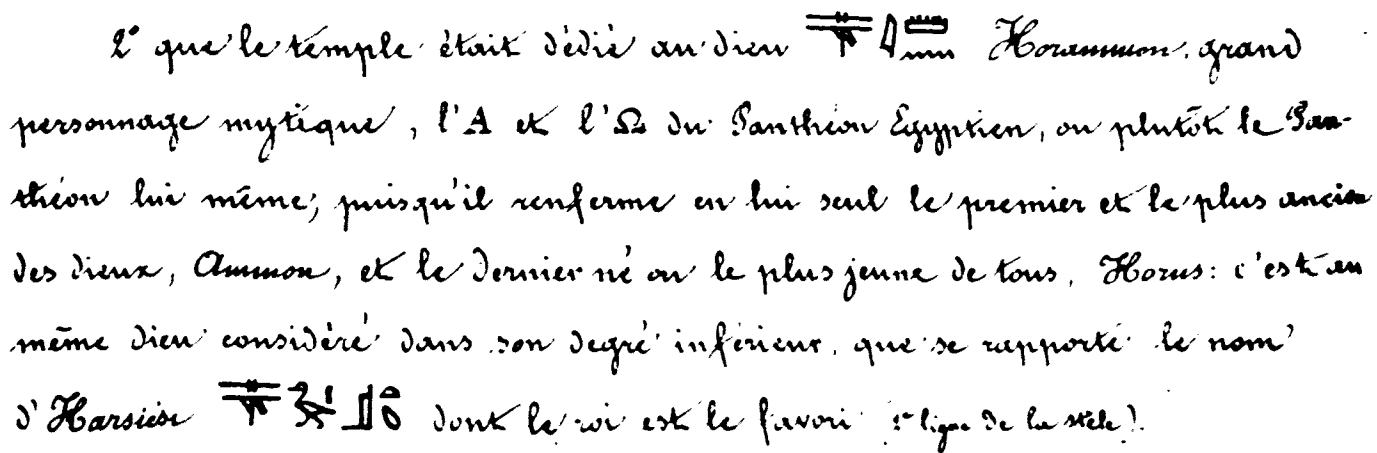 2° que le temple était dédié au dieu Horammon, grand
personnage mytique, l'A et l'Ω du Panthéon Egyptien, ou plutôt le Pan-
théon lui même; puisqu'il renferme en lui seul le premier et le plus ancien
des dieux, Ammon, et le dernier né ou le plus jeune de tous, Horus: c'est au
même dieu considéré dans son degré inférieur, que se rapporte le nom
d'Harsiési dont le roi est le favori ligne de la stèle).